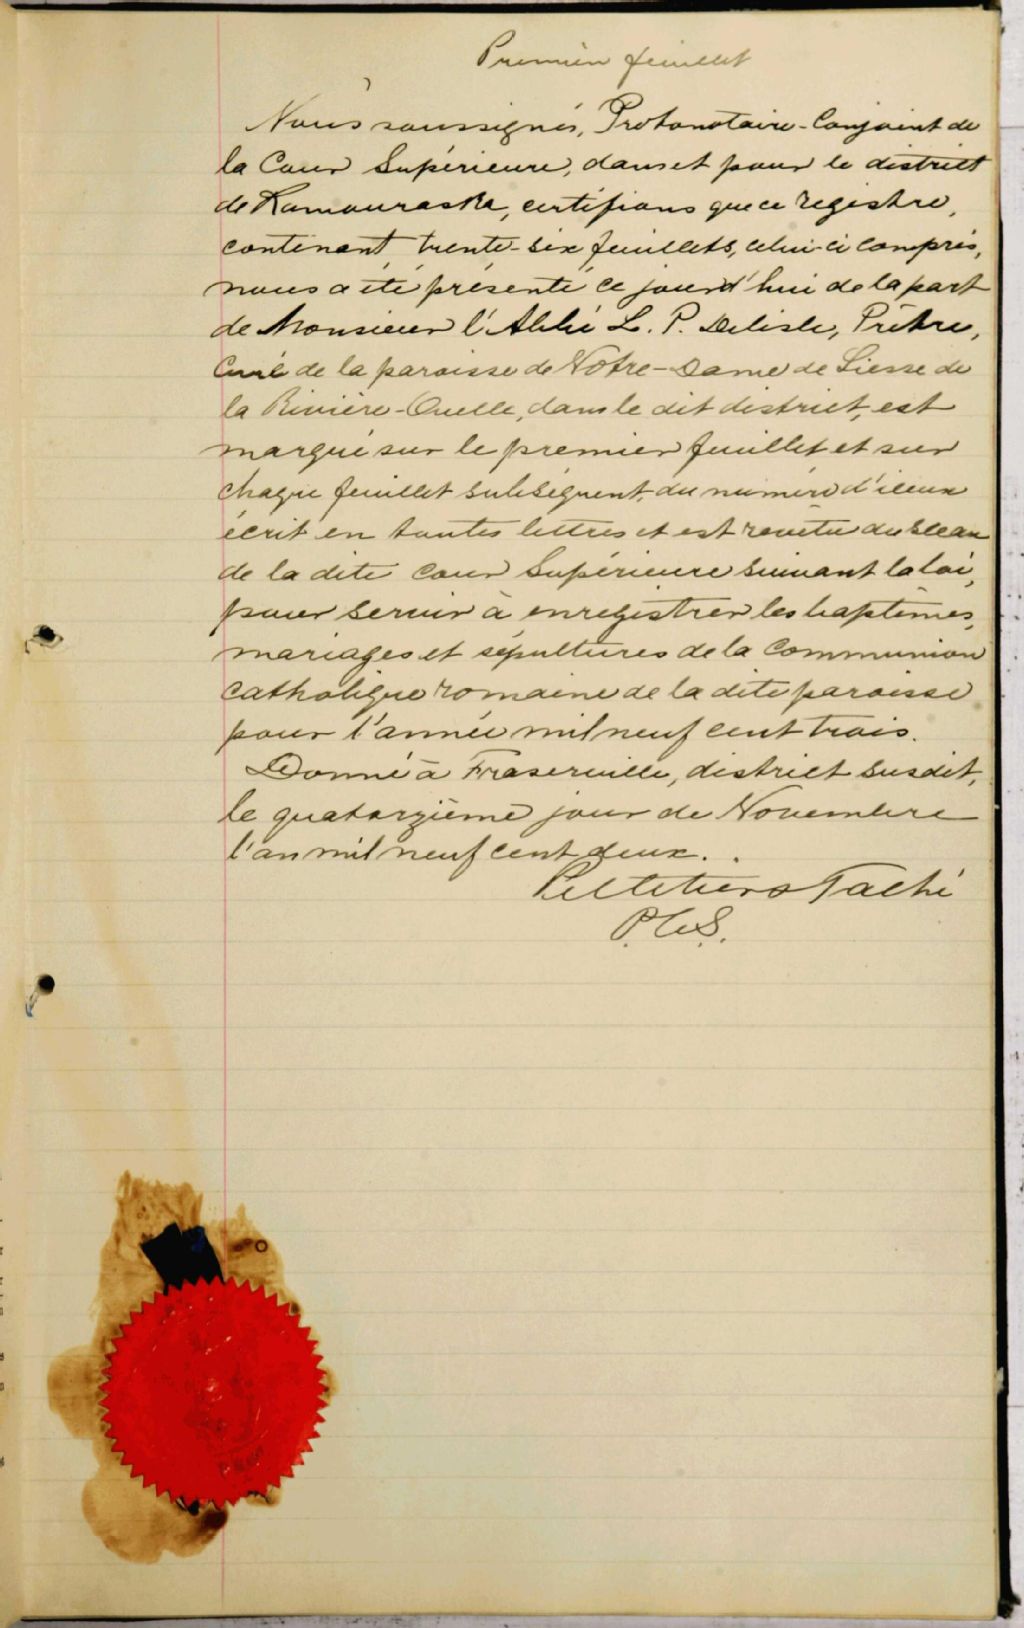 Premier feuillet
Nous soussignés, Protonotaire-Conjoint de
la Cour Supérieure, dans et pour le district
de Kamouraska, certifions que ce registre,
contenant trente-six feuillets, celui-ci compris,
nous a été présenté ce jourd'hui de la part
de Monsieur l'Abbé L. P. Delisle, Prêtre,
Curé de la paroisse de Notre-Dame de Liesse de
la Rivière-Ouelle, dans le dit district, est
marqué sur le premier feuillet et sur
chaque feuillet subséquent, du numéro d'iceux
écrit en toutes lettres et est revêtu du sceau
de la dite Cour Supérieure suivant la loi,
pour servir à enregistrer les baptêmes,
mariages et sépultures de la Communion
Catholique romaine de la dite paroisse
pour l'année mil neuf cent trois.
Donné à Fraserville, district susdit,
le quatorzième jour de Novembre
l'an mil neuf cent deux.
Pelletier & Taché
P.C.S.